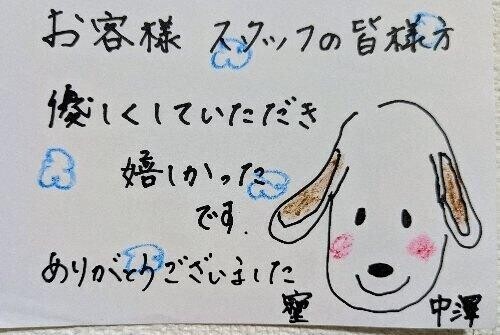 お客様 スタッフの皆様方
優しくしていただき
嬉しかった
です.
ありがとうございました
中澤